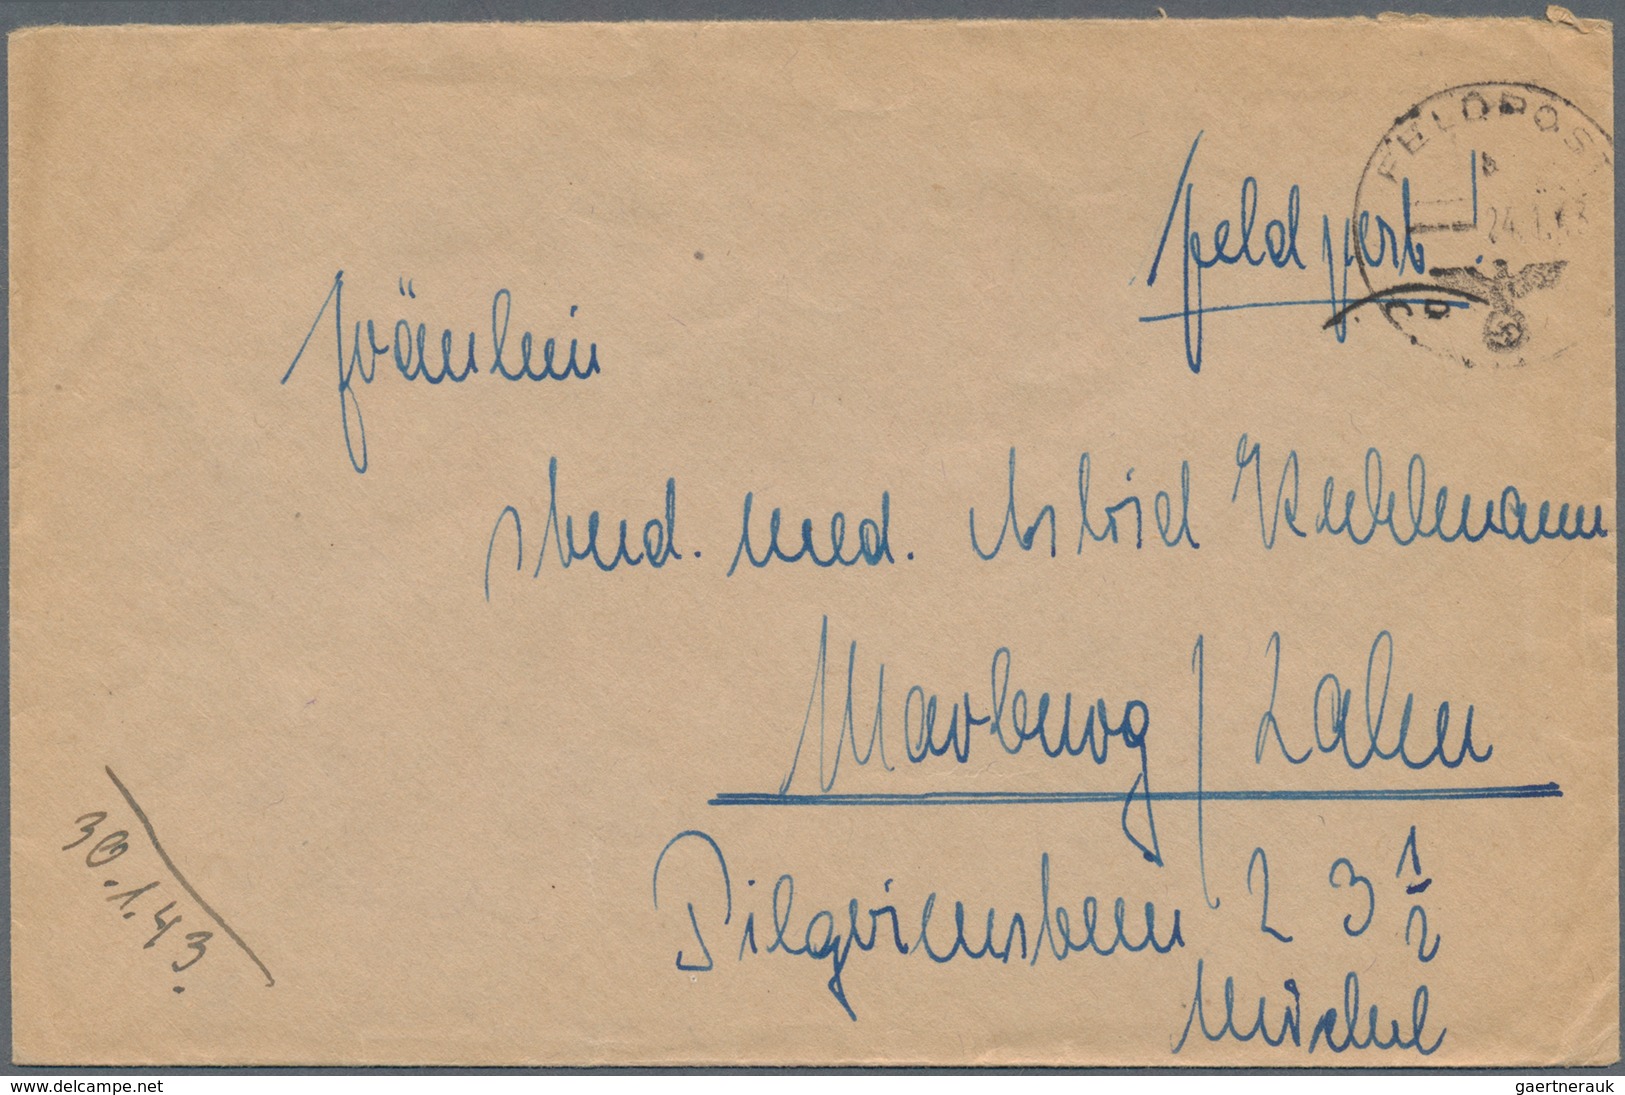 FELDPOST
b
24.1.43
Feldpost
Fräulein
stud. med. Astrid
Marburg / Lahn
Pilgrimstein 23 1/2
30.1.43.
gaertnerauk
www.delcampe.net